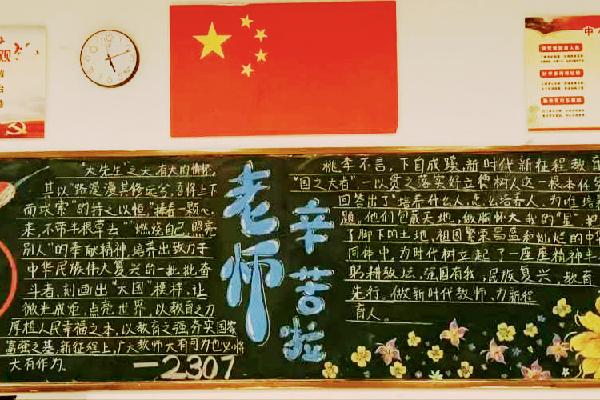 "大先生"之大有大的情怀,
其以"路漫漫其修远兮,吾将上下
而求索"的持之以恒,"捧着一颗心
来,不带半根草去""燃烧自己,照亮
别人"的奉献精神,培养出致力于
中华民族伟大复兴的一批批奋
斗者,刻画出"大国"模样,让
微光成炬,点亮世界,以教育之力
厚植人民幸福之本,以教育之强夯实国家
富强之基,新征程上,广大教师大有可为也必将
大有作为。
—2307
老师
辛苦啦
桃李不言,下自成蹊,新时代新征程教
"国之大者"一以贯之落实好立德树人这一根本任务
回答出了"培养什么人,怎么培养人,为谁培养
题,他们包藏天地,做胸怀大我的"
了脚下的土地,祖国繁荣昌盛和灿烂的中
同伴中,为时代树立起了一座座精神
躬耕教坛,强国有我,民族复兴,教育
先行。做新时代教师,为新程
育人。